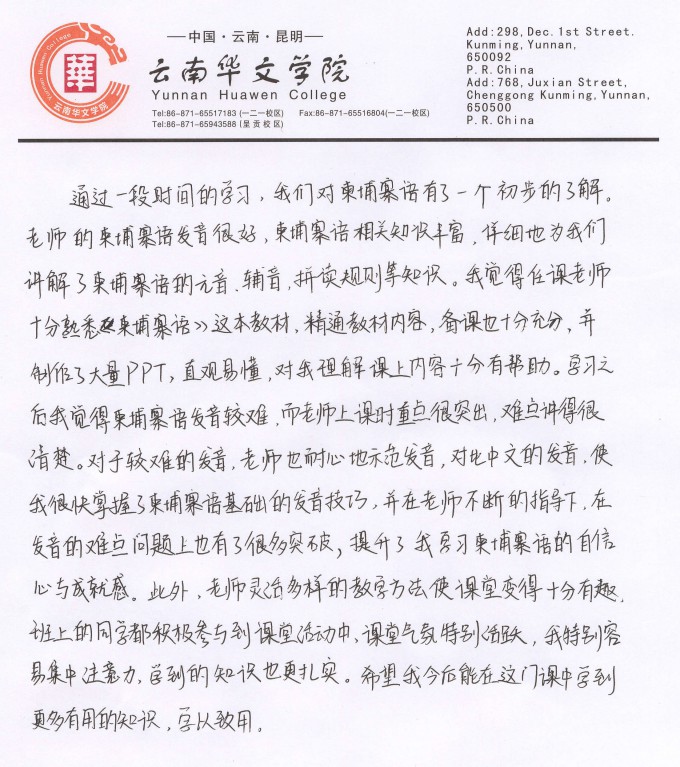 Yunnan Huawen College
華
云南华文学院
中国·云南·昆明
云南华文学院
Yunnan Huawen College
Tel:86-871-65517183 (一二一校区) Fax:86-871-65516804(一二一校区)
Tel:86-871-65943588 [呈贡校区]
Add:298, Dec. 1st Street.
Kunming, Yunnan,
650092
P. R. China
Add:768, Juxian Street,
Chenggong Kunming, Yunnan,
650500
P. R. China
通过一段时间的学习，我们对柬埔寨语有了一个初步的了解。
老师的柬埔寨语发音很好，柬埔寨语相关知识丰富，详细地为我们
讲解了柬埔寨语的元音、辅音，拼读规则等知识。我觉得任课老师
十分熟悉《柬埔寨语》这本教材，精通教材内容，备课也十分充分，并
制作了大量PPT，直观易懂，对我理解课上内容十分有帮助。学习之
后我觉得柬埔寨语发音较难，而老师上课时重点很突出，难点讲得很
清楚。对于较难的发音，老师也耐心地示范发音，对比中文的发音，使
我很快掌握了柬埔寨语基础的发音技巧，并在老师不断的指导下，在
发音的难点问题上也有了很多突破，提升了我学习柬埔寨语的自信
心与成就感。此外，老师灵活多样的教学方法使课堂变得十分有趣，
班上的同学都积极参与到课堂活动中，课堂气氛特别活跃，我特别容
易集中注意力，学到的知识也更扎实。希望我今后能在这门课中学到
更多有用的知识，学以致用。